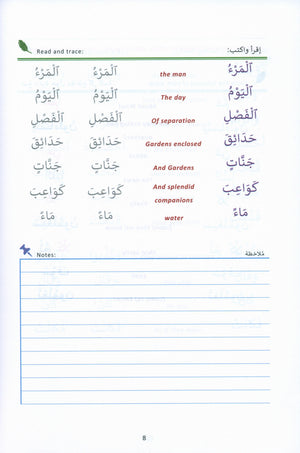 Read and trace: إقرأ واكتب:
ٱلْمَرْءُ ٱلْمَرْءُ the man ٱلْمَرْءُ
ٱلْيَوْمُ ٱلْيَوْمُ The day ٱلْيَوْمُ
ٱلْفَصْلِ ٱلْفَصْلِ Of separation ٱلْفَصْلِ
حَدَائِقَ حَدَائِقَ Gardens enclosed حَدَائِقَ
جَنَّاتٍ جَنَّاتٍ And Gardens جَنَّاتٍ
كَوَاعِبَ كَوَاعِبَ And splendid companions كَوَاعِبَ
مَاءً مَاءً water مَاءً
Notes: مُلاحَظة:
8